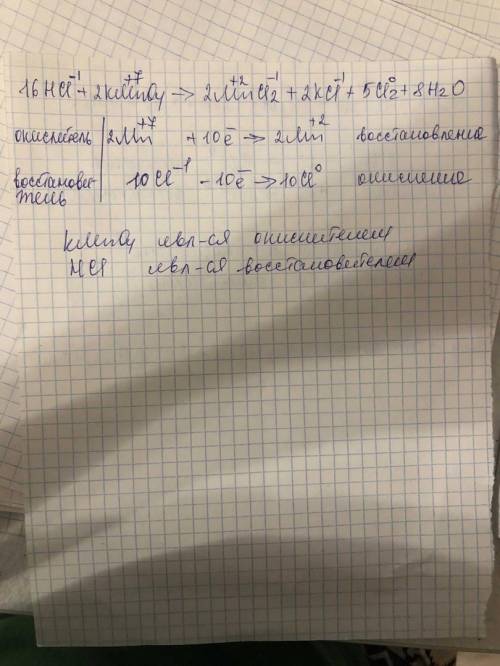 16HCl⁻¹ + 2KMn⁺⁷O₄ → 2Mn⁺²Cl₂⁻¹ + 2KCl⁻¹ + 5Cl₂⁰ + 8H₂O
окислитель | 2Mn⁺⁷ + 10e̅ → 2Mn⁺² восстановление
восстанови-
тель | 10Cl⁻¹ - 10e̅ → 10Cl⁰ окисление
KMnO₄ явл-ся окислителем
HCl явл-ся восстановителем